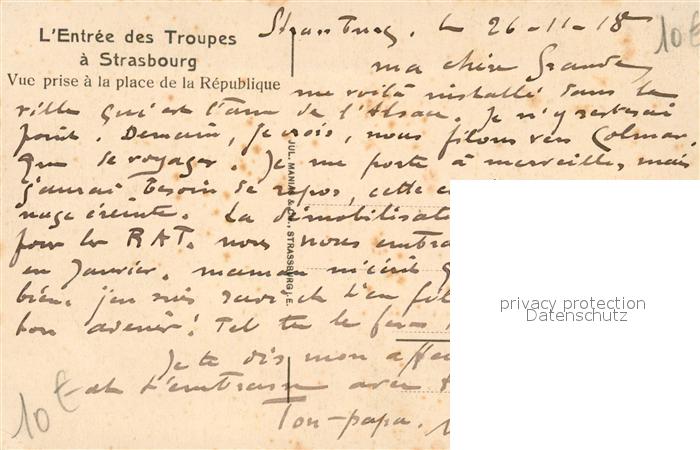 L'Entrée des Troupes
à Strasbourg
Vue prise à la place de la République
Strasbourg, le 26-11-18
10 €
ma chère Grande,
me voilà installé dans la
ville qui est l'âme de l'Alsace. Je n'y resterai
point. Demain, je crois, nous filons vers Colmar.
Que de voyages. Je me porte à merveille, mais
j'aurai besoin de repos, cette
éreinte. La démobilisat
pour les RAT. nous nous
en Janvier. maman m'écrit
bien. j'en suis ravi et t'en
bon avenir! Tel tu le feras
Je te dis mon affec
et t'embrasse avec
Ton papa.
10 €
JUL. MANIAS & Cie., STRASSBURG i. E.
privacy protection
Datenschutz